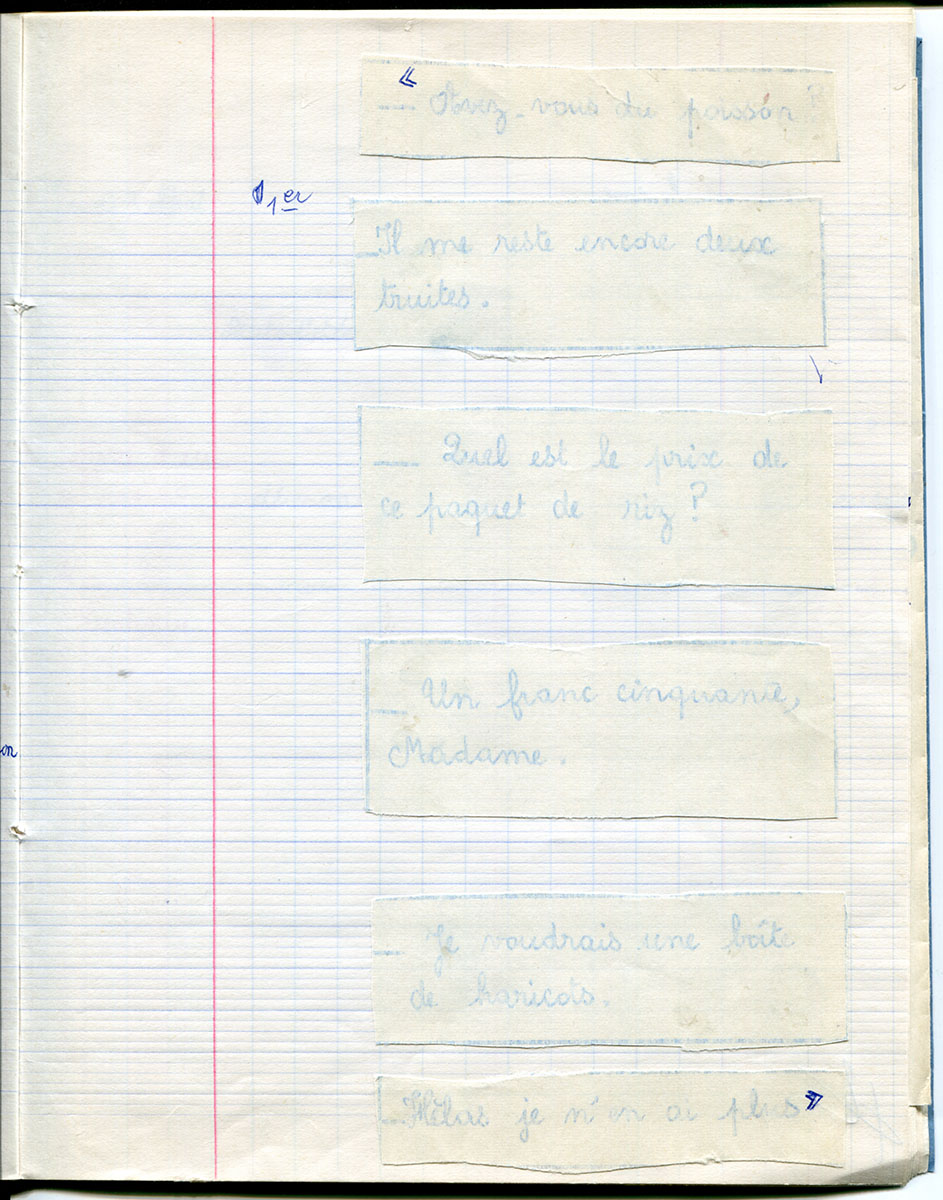 «
— Avez-vous du poisson ?
1er
— Il me reste encore deux
truites.
— Quel est le prix de
ce paquet de riz ?
— Un franc cinquante,
Madame.
— Je voudrais une boîte
de haricots.
— Hélas je n'en ai plus »